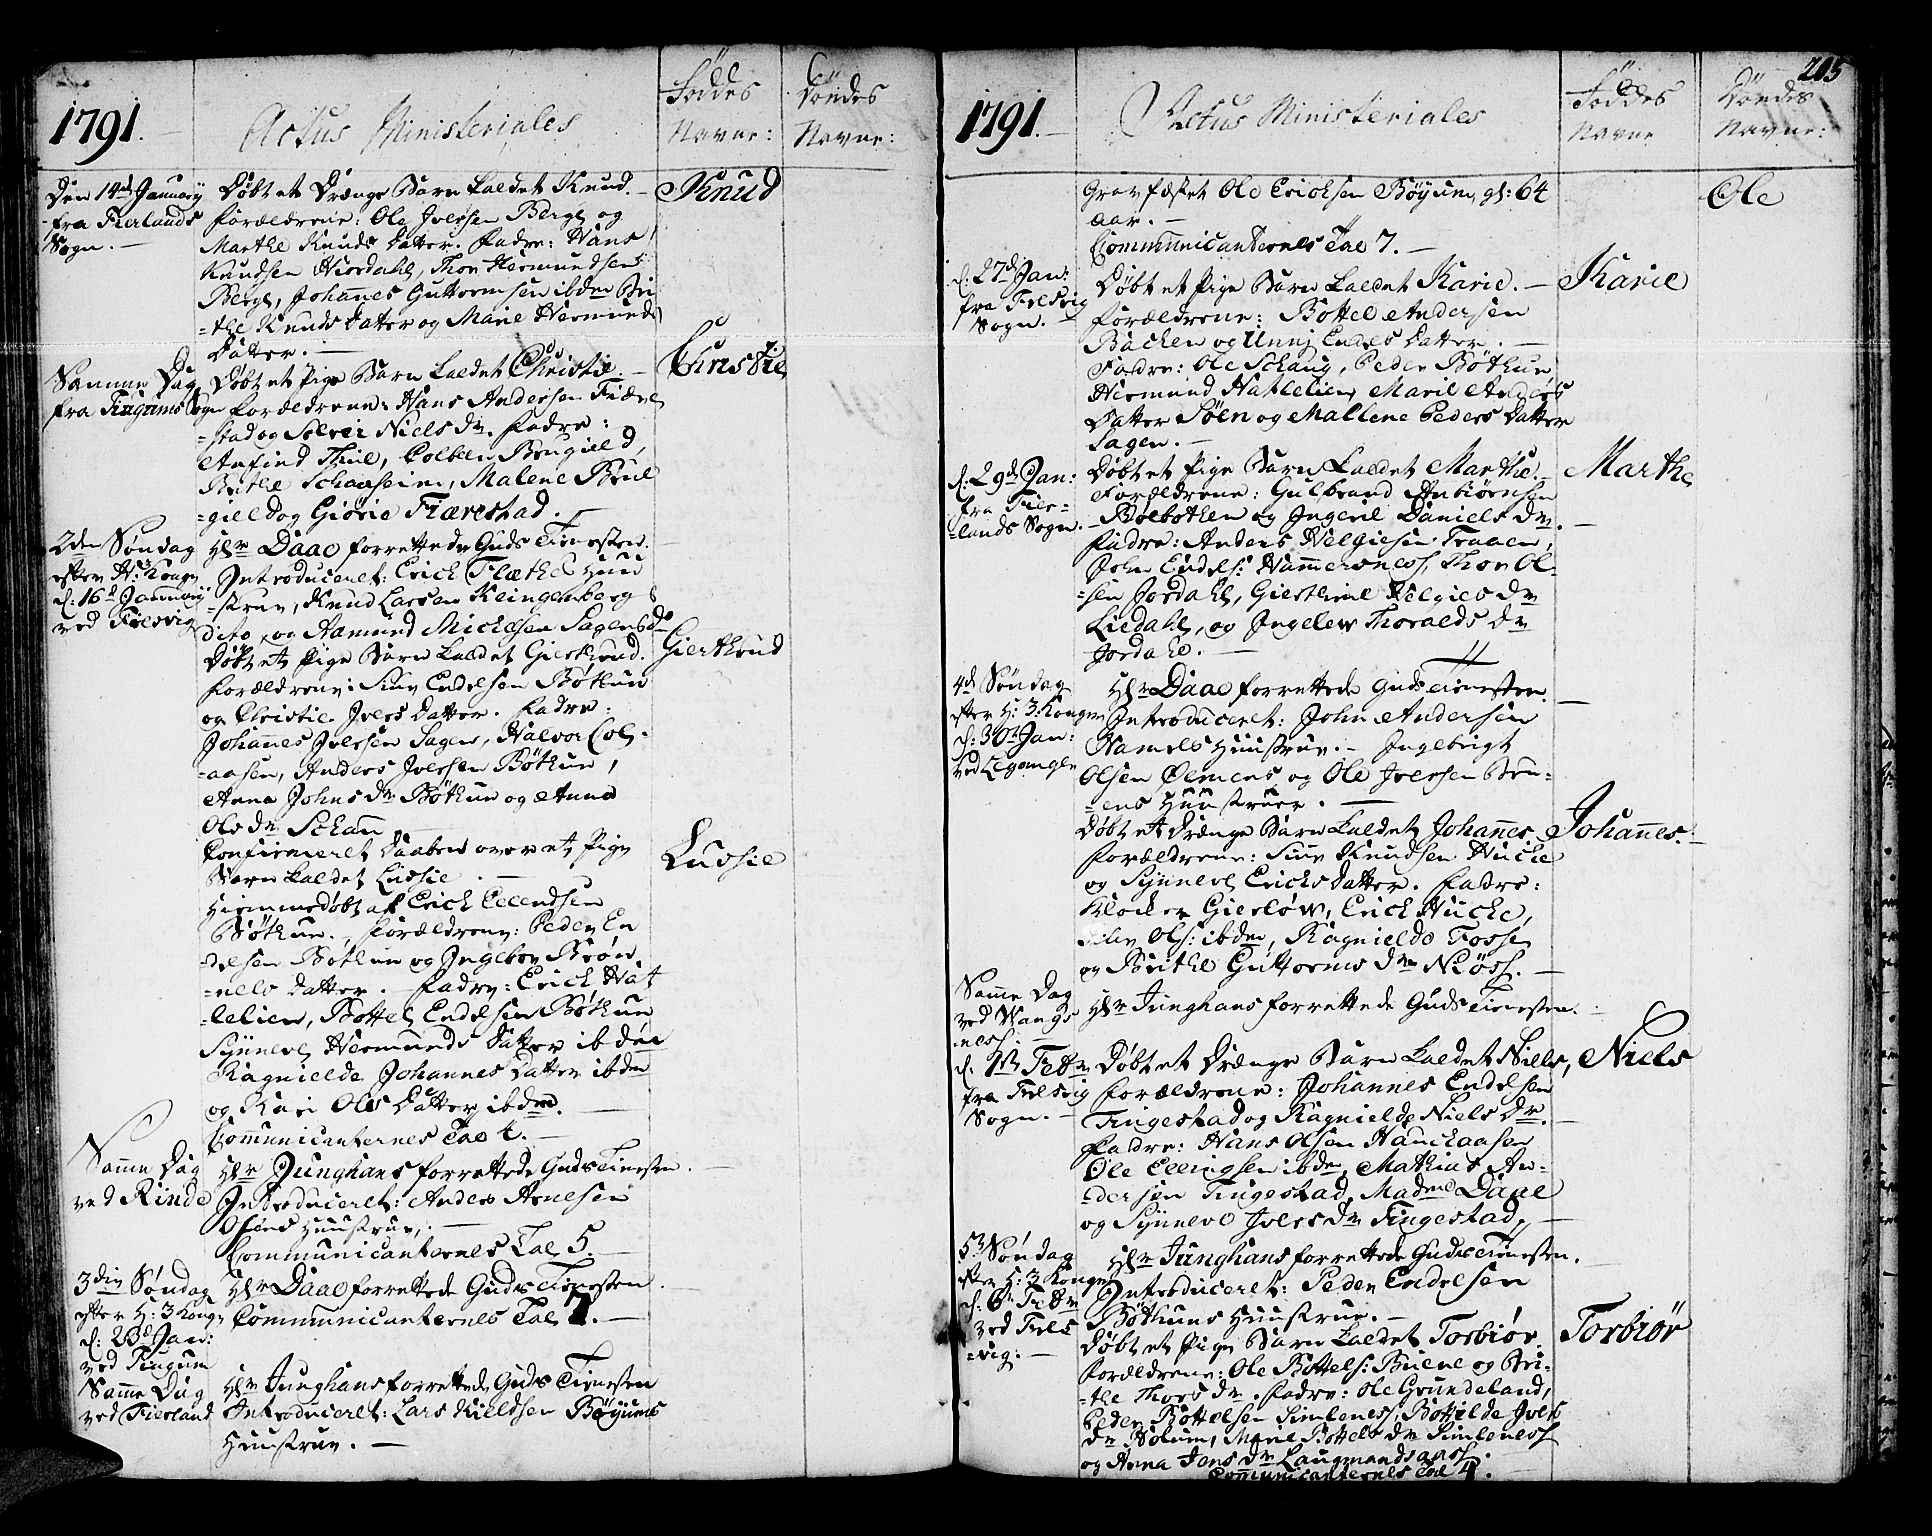 1791.
Actus Ministeriales
Føddes
Navne:
Døndes
Navne:
Den 14de January
fra Fierlands
Sogn. —
Døbt et Drænge Barn kaldet Knud. —
Knud
Forældrene: Ole Iversen Berge og
Marthe Knuds Datter. Fadre: Hans
Knudsen Hiordahl, Thor Hermundsen
Berge, Johannes Guttormsen ibdm Bri
=the Knuds Datter og Marie Hermunds
Datter. —
Samme Dag
fra Tingums Sogn
Døbt et Pige Barn kaldet Christie. —
Christie
Forældrene: Hans Andersen Fiære
=stad og Solvei Niels Dr. Fadre:
Anfind Thue, Colbeen Brugield,
Brithe Schaasheim, Malene Brue
=gield og Giørie Fiærestad. —
2den Søndag
efter H: 3 Kong
d: 16d January
ved Fresvig
Hr Daae forrettede Guds Tienesten.
Introduceret: Erich Flæthe Huu
=strue, Knud Larsen Klingenberg
dito, og Aamund Michelsen Sagens do
Døbt et Pige Barn kaldet Gierthrud.
Gierthrud
Forældrene: Siur Endelsen Bøthun
og Christie Ivers Datter. Fadre:
Johannes Iversen Sagen, Halvor Col-
=aasen, Anders Iversen Bøthun,
Anna Johns Dr Bøthun og Anna
Ols Dr Schau
Confirmeret Daaben over et Pige
Barn kaldet Ludsie. —
Ludsie
Hiemmedøbt af Erich Ellendsen
Bøthun. Forældrene: Peder En
=delsen Bøthun og Ingebor Brøn
=nels Datter. — Fadre: Erich Hat
=lelien, Bottel Endelsen Bøthun
Synneve Hermunds Datter ibdm
Ragnielde Johannes Datter ibdm
og Kari Ols Datter ibdm. —
Comunicanternes Tal 4. —
Samme Dag
ved Rinde
Hr Junghans forrettede Guds Tienesten. —
Introduceret: Anders Arnesen
Huustrue. —
Communicanternes Tal 5. —
3die Søndag
efter H: 3 Kong
d: 23d Jan:
ved Tingum
Hr Daae forrettede Guds Tienesten.
Communicanternes Tal 7. —
Samme Dag
ved Fierland
Hr Junghans forrettede Guds Tienesten
Introduceret: Lars Kieldsen Bøyums
Huustrue. —
205
1791. —
Actus Ministeriales
Føddes
Navne
Døndes
Navne:
Gravfæstet Ole Erichsen Bøyum, gl: 64
Ole
aar. —
Communicanternes Tal 7. —
d: 27d Jan:
fra Fresvig
Sogn. —
Døbt et Pige Barn kaldet Karie. —
Karie
Forældrene: Bottel Andersen
Bachen og Unni Endes Datter. —
Fadre: Ole Schaug, Peder Bøthun
Hermund Hatlelien, Marie Anders
Datter Søen og Mallene Peders Datter
Sagen. —
d: 29d Jan:
fra Fier-
=lands Sogn. —
Døbt et Pige Barn kaldet Marthe. —
Marthe
Forældrene: Gulbrand Anbiørnsen
Bolbothen og Ingerie Daniels Dr. —
Fadre: Anders Helgiesen Traaen,
John Endels: Hammersness, Thor Ol-
=sen Jordahl, Gierthrue Helgies Dr
Liedahl, og Ingelev Thoralds Dr
Jordahl. —
4d Søndag
efter H: 3 Konger
d: 30t Jan:
ved Leganger
Hr Daae forrettede Guds Tienesten. —
Introduceret: John Andersen
Hamels Huustrue. — Ingebrigt
Olsen Ølmens og Ole Iversen Bru-
=ens Huustruer. —
Døbt et Drænge Barn kaldet Johannes
Johannes. —
Forældrene: Siur Knudsen Hucke
og Synneve Erichs Datter. Fadre:
Klocker Gierløw, Erich Hucke,
Ols: ibdm, Ragnielde Fosse
og Brithe Guttorms Dr Niøss. —
Samme Dag
ved Wangs
ness. —
Hr Junghans forrettede Guds Tienesten. —
d. 1st Febr
fra Fresvig
Sogn. —
Døbt et Drænge Barn kaldet Niels,
Niels
Forældrene: Johannes Endelsen
Tingestad og Ragnielde Niels Dr. —
Fadre: Hans Olsen Hauchaasen
Ole Ellingsen ibdm, Mathias An-
=dersen Tingestad, Madme Daae
og Synneve Ivers Dr Tingestad, —
5t Søndag
efter H: 3 Konger
d: 6t Febr
ved Fres
=vig: —
Hr Junghans forrettede Guds Tienesten. —
Introduceret: Peder Endelsen
Bøthuns Huustrue. —
Døbt et Pige Barn kaldet Torbiør.
Torbiør
Forældrene: Ole Bottels: Briene og Bri-
=the Thors Dr. Fadre: Ole Grundeland,
Peder Bottelsen Simleness, Bottilde Ivers
Dr Holum, Marie Bottels Dr Simleness
og Anna Jens Dr Laugmandsaass. —
Communicanternes Tal 4. —